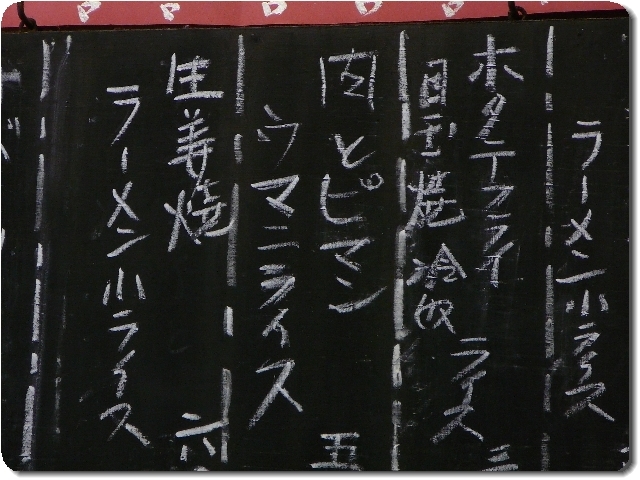 ラーメン小ライス
ホタテフライ
目玉焼 冷奴
ライス
肉とピマン 五
ウマニライス
生姜焼 六
ラーメン小ライス